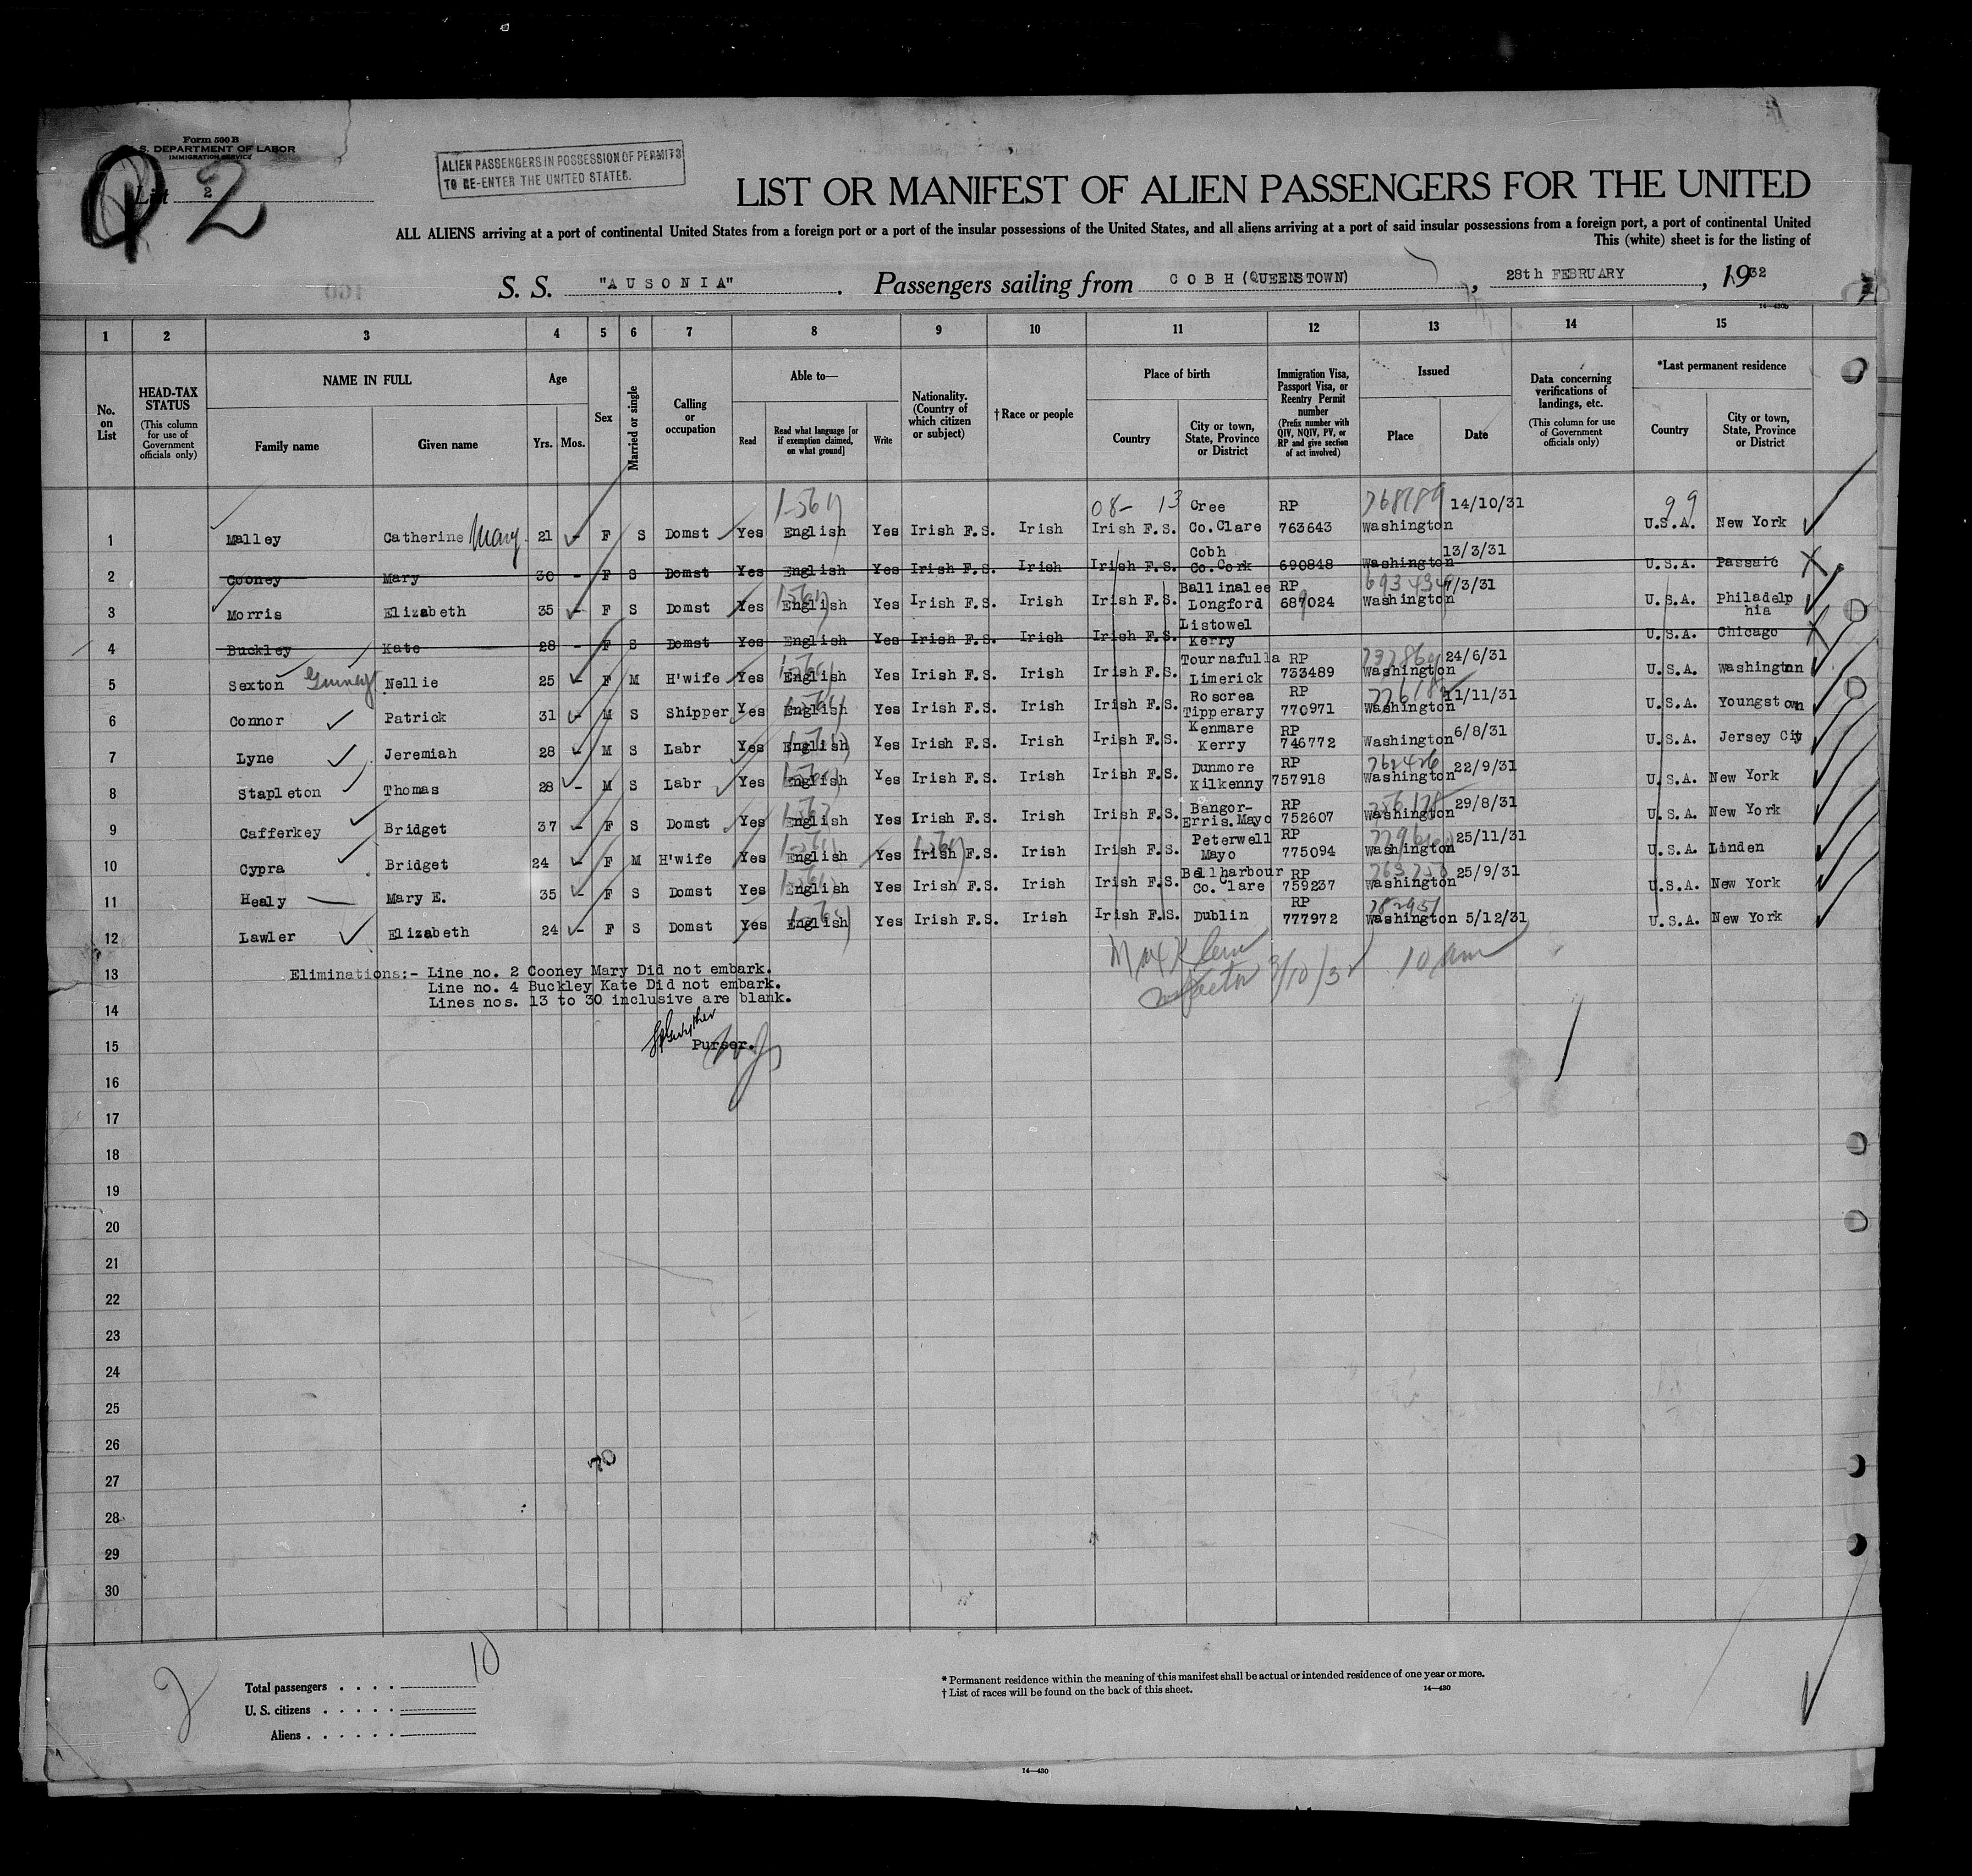 Form 500 B
S. DEPARTMENT OF LABOR
IMMIGRATION SERVICE
List 2
2
ALIEN PASSENGERS IN POSSESSION OF PERMITS
TO RE-ENTER THE UNITED STATES.
LIST OR MANIFEST OF ALIEN PASSENGERS FOR THE UNITED
ALL ALIENS arriving at a port of continental United States from a foreign port or a port of the insular possessions of the United States, and all aliens arriving at a port of said insular possessions from a foreign port, a port of continental United
This (white) sheet is for the listing of
S. S. "AUSONIA". Passengers sailing from COBH (QUEENSTOWN), 28th FEBRUARY, 1932
14—430b
1 2 3 4 5 6 7 8 9 10 11 12 13 14 15
No. on List
HEAD-TAX STATUS (This column for use of Government officials only)
NAME IN FULL Family name Given name
Age Yrs. Mos.
Sex
Married or single
Calling or occupation
Able to— Read Read what language [or if exemption claimed, on what ground] Write
Nationality. (Country of which citizen or subject)
†Race or people
Place of birth Country City or town, State, Province or District
Immigration Visa, Passport Visa, or Reentry Permit number (Prefix number with QIV, NQIV, PV, or RP and give section of act involved)
Issued Place Date
Data concerning verifications of landings, etc. (This column for use of Government officials only)
*Last permanent residence Country City or town, State, Province or District
08- 13 99
1 Malley Catherine Mary 21 - F S Domst Yes English Yes Irish F.S. Irish Irish F.S. Cree Co.Clare RP 763643 Washington 14/10/31 U.S.A. New York
2 Cooney Mary 30 - F S Domst Yes English Yes Irish F.S. Irish Irish F.S. Cobh Co.Cork 690848 Washington 13/3/31 U.S.A. Passaic
3 Morris Elizabeth 35 - F S Domst Yes English Yes Irish F.S. Irish Irish F.S. Ballinalee Longford RP 687024 Washington 7/3/31 U.S.A. Philadelphia
4 Buckley Kate 28 - F S Domst Yes English Yes Irish F.S. Irish Irish F.S. Listowel Kerry U.S.A. Chicago
5 Sexton Nellie 25 - F M H'wife Yes English Yes Irish F.S. Irish Irish F.S. Tournafulla Limerick RP 733489 Washington 24/6/31 U.S.A. Washington
6 Connor Patrick 31 - M S Shipper Yes English Yes Irish F.S. Irish Irish F.S. Roscrea Tipperary RP 770971 Washington 11/11/31 U.S.A. Youngstown
7 Lyne Jeremiah 28 - M S Labr Yes English Yes Irish F.S. Irish Irish F.S. Kenmare Kerry RP 746772 Washington 6/8/31 U.S.A. Jersey City
8 Stapleton Thomas 28 - M S Labr Yes English Yes Irish F.S. Irish Irish F.S. Dunmore Kilkenny RP 757918 Washington 22/9/31 U.S.A. New York
9 Cafferkey Bridget 37 - F S Domst Yes English Yes Irish F.S. Irish Irish F.S. Bangor-Erris.Mayo RP 752607 Washington 29/8/31 U.S.A. New York
10 Cypra Bridget 24 - F M H'wife Yes English Yes Irish F.S. Irish Irish F.S. Peterwell Mayo RP 775094 Washington 25/11/31 U.S.A. Linden
11 Healy Mary E. 35 - F S Domst Yes English Yes Irish F.S. Irish Irish F.S. Bellharbour Co.Clare RP 759237 Washington 25/9/31 U.S.A. New York
12 Lawler Elizabeth 24 - F S Domst Yes English Yes Irish F.S. Irish Irish F.S. Dublin RP 777972 Washington 5/12/31 U.S.A. New York
13 Eliminations:- Line no. 2 Cooney Mary Did not embark.
Line no. 4 Buckley Kate Did not embark.
14 Lines nos. 13 to 30 inclusive are blank.
10 am
15 Purser.
16
17
18
19
20
21
22
23
24
25
26
27
28
29
30
Total passengers . . . . 10
U. S. citizens . . . . .
Aliens . . . . . .
2
* Permanent residence within the meaning of this manifest shall be actual or intended residence of one year or more.
† List of races will be found on the back of this sheet.
14—430
14—430